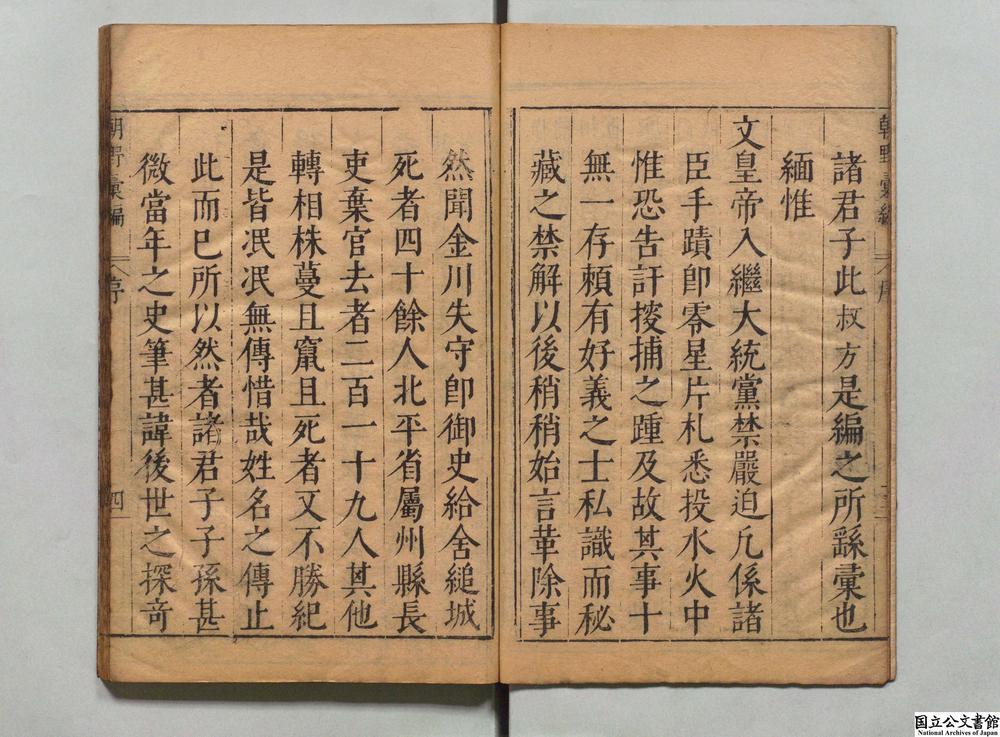 諸君子此叔方是編之所繇彚也
緬惟
文皇帝入繼大統黨禁嚴迫凢係諸
臣手蹟卽零星片札悉投水火中
惟恐告訐搜捕之踵及故其事十
無一存頼有好義之士私識而秘
藏之禁解以後稍稍始言革除事
然聞金川失守卽御史給舍縋城
死者四十餘人北平省屬州縣長
吏棄官去者二百一十九人其他
轉相株蔓且竄且死者又不勝紀
是皆泯泯無傳惜哉姓名之傳止
此而已所以然者諸君子子孫甚
微當年之史筆甚諱後世之探竒
朝野彚編
序
四
国立公文書館
National Archives of Japan